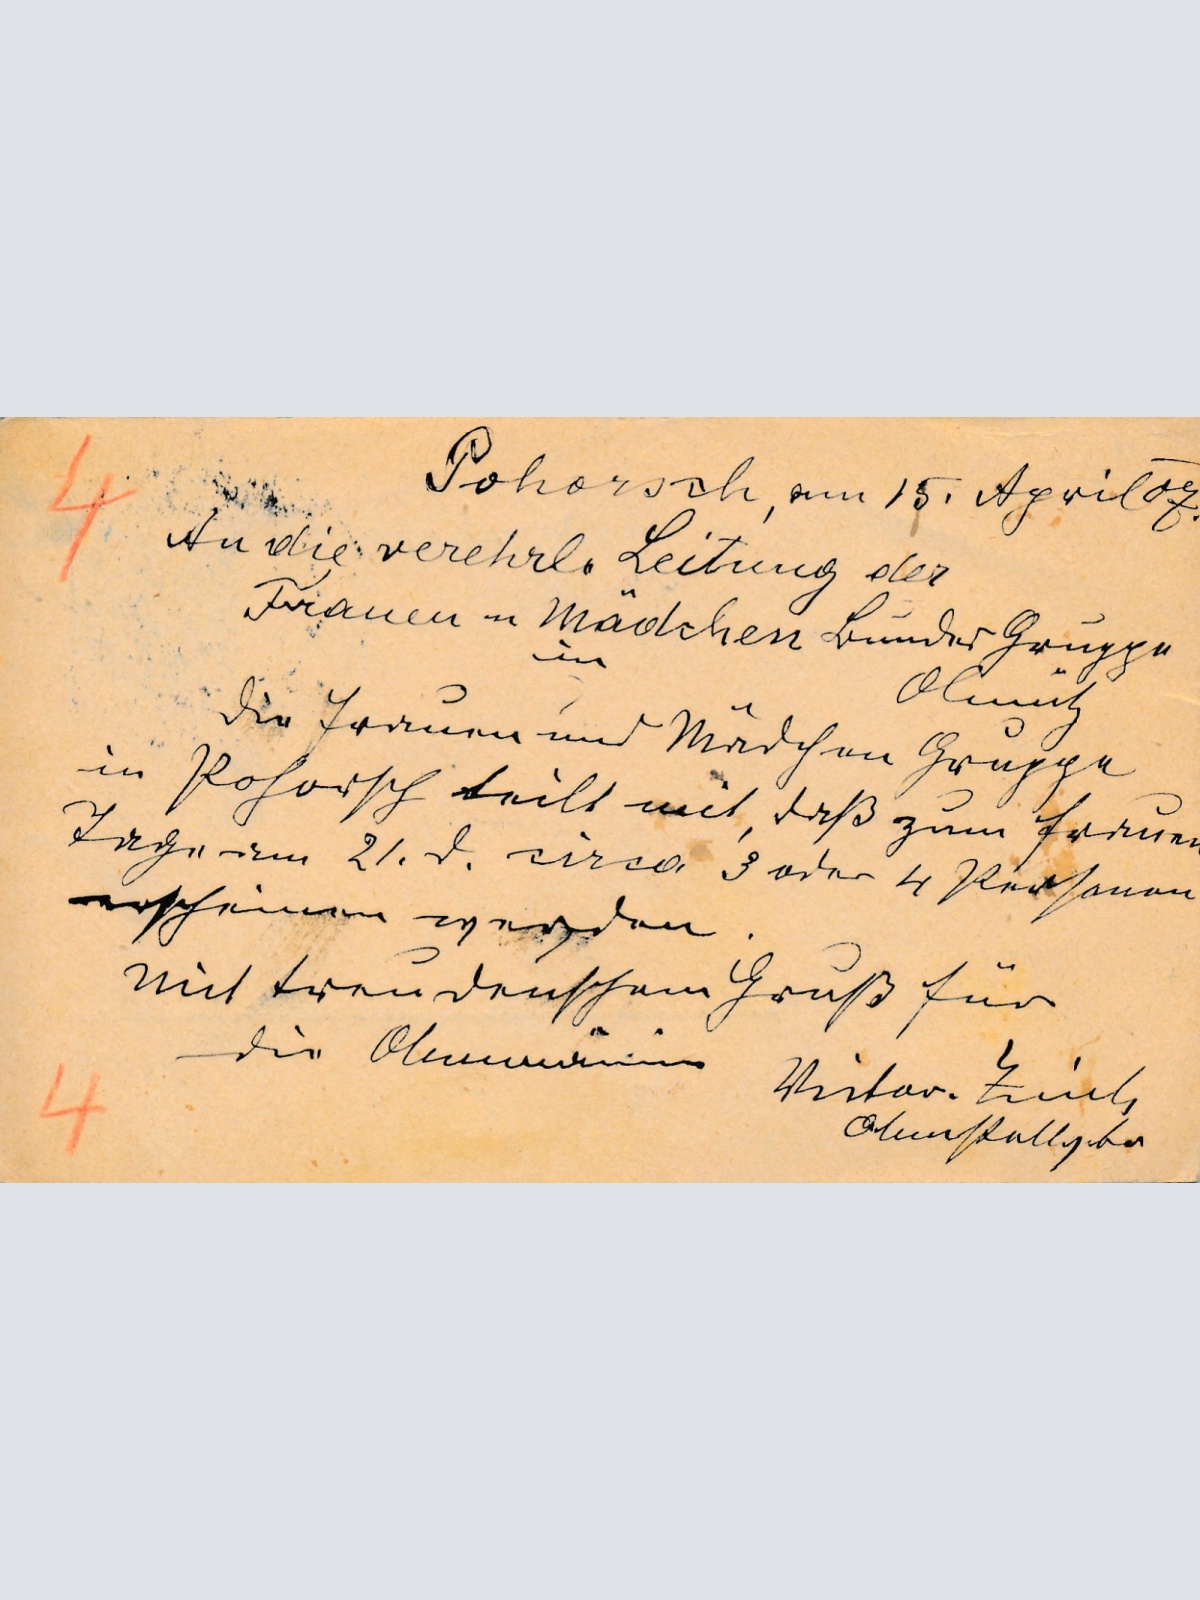 4
Pohorsch, am 15. April 07.
An die verehrl. Leitung der
Frauen u Mädchen Bundes Gruppe
in
Olmütz
Die Frauen und Mädchen Gruppe
in Pohorsch teilt mit, daß zum Frauen
Tage am 21. d. circa 3 oder 4 Personen
erscheinen werden.
Mit treudeutschem Gruß für
die Obmännin
4
Victor